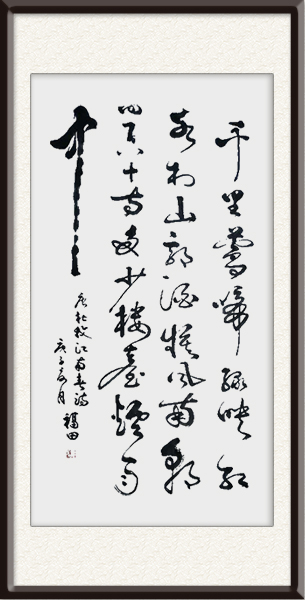 千里鶯啼綠映紅
水村山郭酒旗風南朝
四百八十寺多少樓臺煙雨
中
唐杜牧江南春詩
庚子月 福田